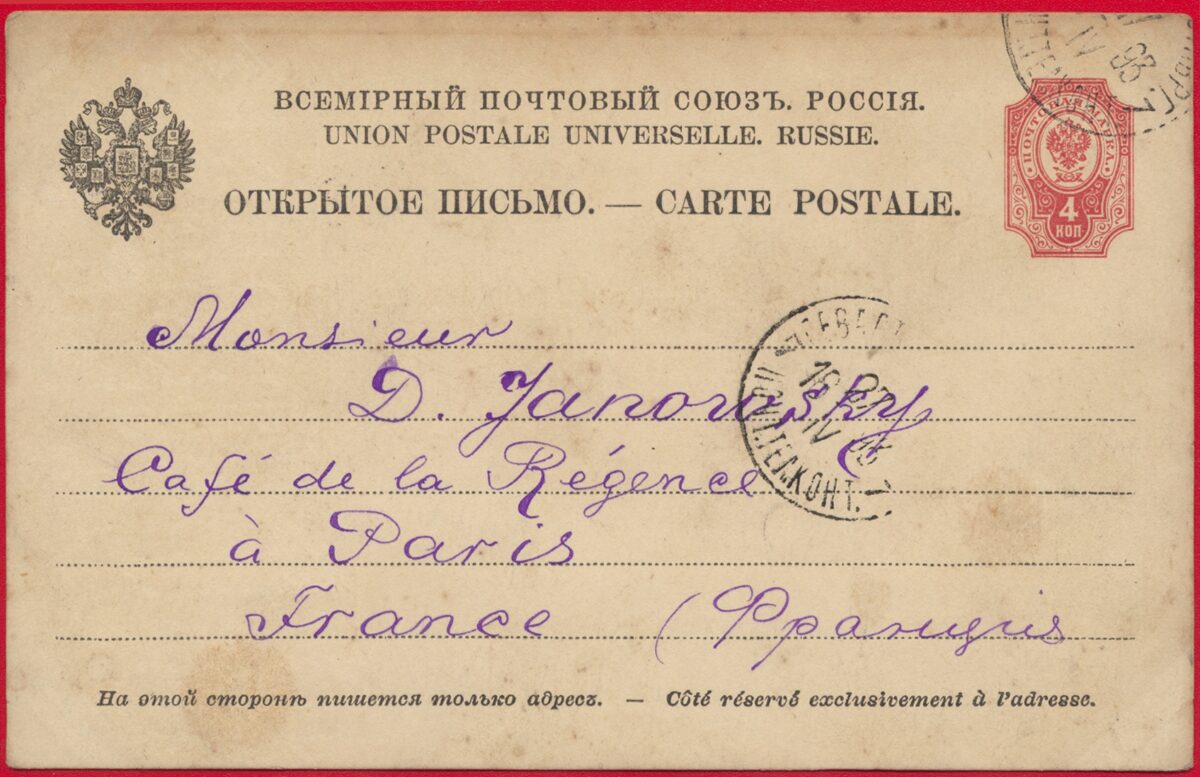 ВСЕМІРНЫЙ ПОЧТОВЫЙ СОЮЗЪ. РОССІЯ.
UNION POSTALE UNIVERSELLE. RUSSIE.
ОТКРЫТОЕ ПИСЬМО. — CARTE POSTALE.
ПОЧТОВАЯ МАРКА.
4
КОП
Monsieur
D. Janowsky
Café de la Régence
à Paris
France (Франція
ПОЧТ.ТЕЛ.КОНТ. 7
IV
На этой сторонѣ пишется только адресъ. — Côté réservé exclusivement à l'adresse.